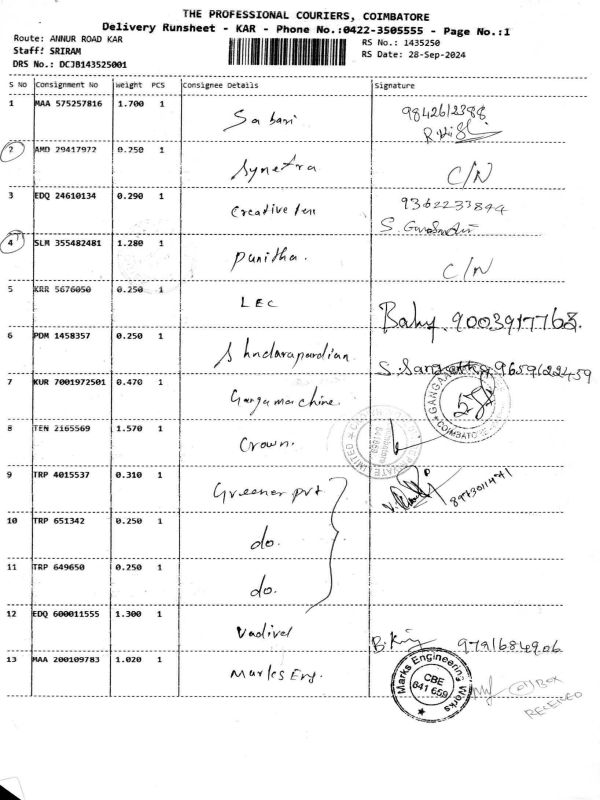 THE PROFESSIONAL COURIERS, COIMBATORE
Delivery Runsheet - KAR - Phone No.:0422-3505555 - Page No.:1
Route: ANNUR ROAD KAR
RS No.: 1435250
Staff: SRIRAM
RS Date: 28-Sep-2024
DRS No.: DCJB143525001
S No Consignment No Weight PCS Consignee Details Signature
1 MAA 575257816 1.700 1 Sabari 9842612388
2 AMD 29417972 0.250 1 Synetra C/N
3 EDQ 24610134 0.290 1 Creative 9362233844
S.
4 SLM 355482481 1.280 1 Punitha. C/N
5 KRR 5676050 0.250 1 LEC 9003917768.
6 PDM 1458357 0.250 1 Shndarapandian S. 9659122459
7 KUR 7001972501 0.470 1 Ganga machine.
COIMBATORE
8 TEN 2165569 1.570 1 Crown.
PRIVATE LIMITED
9 TRP 4015537 0.310 1 Greener pvt
10 TRP 651342 0.250 1 do.
11 TRP 649650 0.250 1 do.
12 EDQ 600011555 1.300 1 Vadivel 9791684906
13 MAA 200109783 1.020 1 Marks Eng.
Marks Engineering Works
CBE
641 659
BOX
RECEIVED